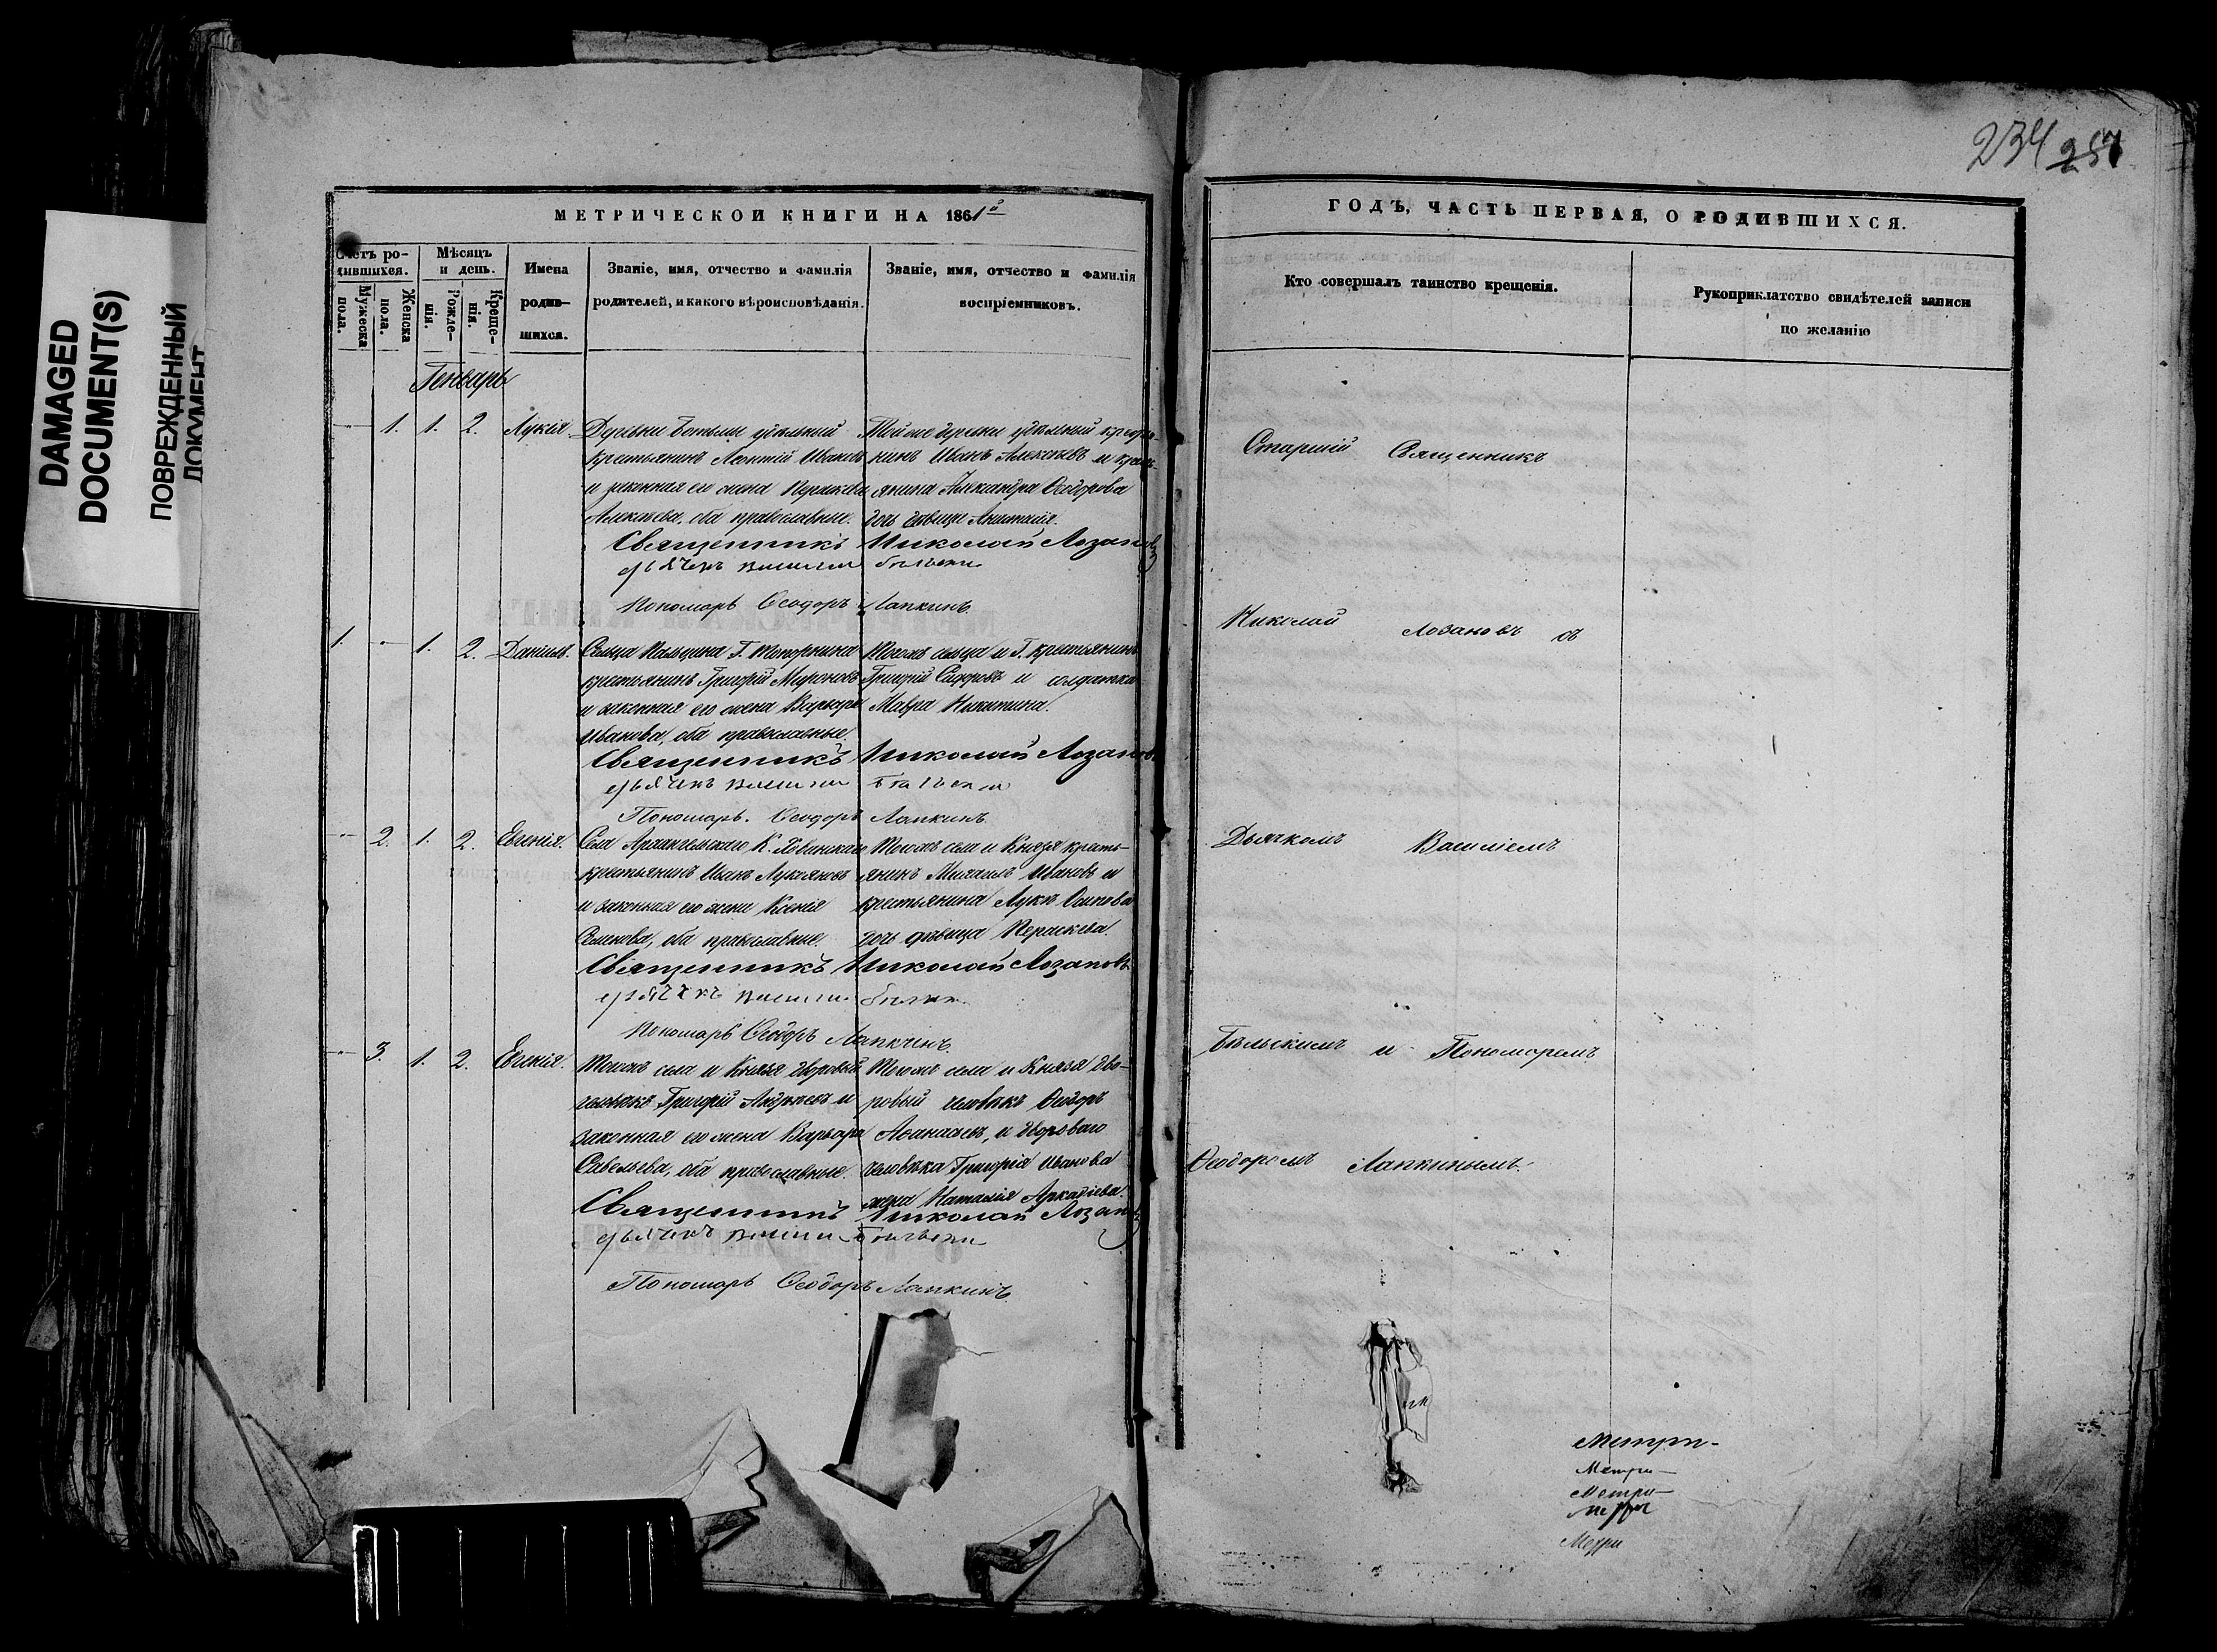 DAMAGED
DOCUMENT(S)
ПОВРЕЖДЕННЫЙ
ДОКУМЕНТ
234 257
МЕТРИЧЕСКОЙ КНИГИ НА 1861й
Счетъ родившихся.
Мужеска пола.
Женска пола.
Мѣсяцъ и день.
Рожденія.
Крещенія.
Имена
родив-
шихся.
Званіе, имя, отчество и фамилія
родителей, и какого вѣроисповѣданія.
Званіе, имя, отчество и фамилія
воспріемниковъ.
Генварь
1. 1. 2. Лукія.
Деревни удѣльный
крестьянинъ Леонтій Ивановъ
и законная его жена
Алексѣева, оба православные.
Той же деревни удѣльный крестья-
нинъ Иванъ Алексѣевъ и кресть-
янина Александра Ѳеодорова
дочь дѣвица Анастасія.
Священникъ Николай Лозановъ
Дьячекъ Василій Бѣльскій
Пономарь Ѳеодоръ Лапкинъ.
1. - 1. 2. Даніилъ.
Сельца Г. Топорнина
крестьянинъ Григорій Мироновъ
и законная его жена Варвара
Иванова, оба православные.
Тогожъ сельца и Г. крестьянинъ
Григорій Сидоровъ и солдатка
Мавра Никитина.
Священникъ Николай Лозановъ
Дьячекъ Василій Бѣльскій
Пономарь. Ѳеодоръ Лапкинъ.
- 2. 1. 2. Евгенія.
Села Архангельскаго К.
крестьянинъ Иванъ Лукіяновъ
и законная его жена Ксенія
Семенова, оба православные.
Тогожъ села и Князя кресть-
янинъ Михаилъ Ивановъ и
крестьянина Луки Осипова
дочь дѣвица Параскева.
Священникъ Николай Лозановъ
Дьячекъ Василій Бѣльскій
Пономарь Ѳеодоръ Лапкинъ.
- 3. 1. 2. Евгенія.
Тогожъ села и Князя дворовый
человѣкъ Григорій Андреевъ и
законная его жена Варвара
Савельева, оба православные.
Тогожъ села и Князя дво-
ровый человѣкъ Ѳеодоръ
Аѳанасьевъ, и двороваго
человѣка Григорія Иванова
жена Наталія Аркадіева.
Священникъ Николай Лозановъ
Дьячекъ Василій Бѣльскій
Пономарь Ѳеодоръ Лапкинъ.
ГОДЪ, ЧАСТЬ ПЕРВАЯ, О РОДИВШИХСЯ.
Кто совершалъ таинство крещенія.
Рукоприкладство свидѣтелей записи
по желанію
Старшій Священникъ
Николай Лозановъ съ
Дьячкомъ Василіемъ
Бѣльскимъ и Пономаремъ
Ѳеодоромъ Лапкинымъ.
Метри-
Метри-
Метри-
Метри
Метри